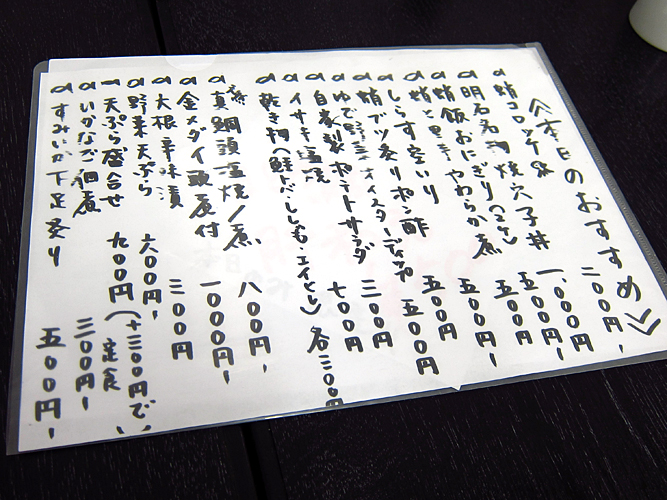 《本日のおすすめ》
蛸コロッケ 二〇〇円ー
明石名物焼穴子丼 一、〇〇〇円
蛸飯おにぎり(2ケ) 五〇〇円ー
蛸と里芋やわらか煮 五〇〇円
しらす釜 五〇〇円
蛸ブツ炙りポン酢 五〇〇円
ゆで野菜オイスターディップ 三〇〇円
自家製ポテトサラダ 七〇〇円
イサキ塩焼
乾き物(鮭とば・ししゃも・エイヒレ)各三〇〇円
真鯛頭塩焼/煮 八〇〇円ー
金メダイ頭煮付 一〇〇〇円ー
大根辛味漬 三〇〇円
野菜天ぷら 六〇〇円ー
天ぷら盛合せ 九〇〇円(+三〇〇円で定食)
いかなご佃煮 三〇〇円ー
すみいか下足炙り 五〇〇円ー